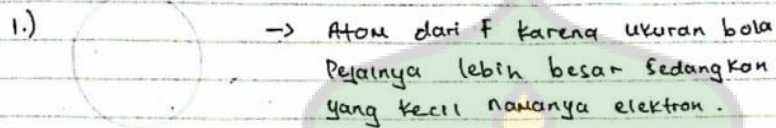 1.) → Atom dari F karena ukuran bola
Pejalnya lebih besar sedangkan
yang kecil namanya elektron.